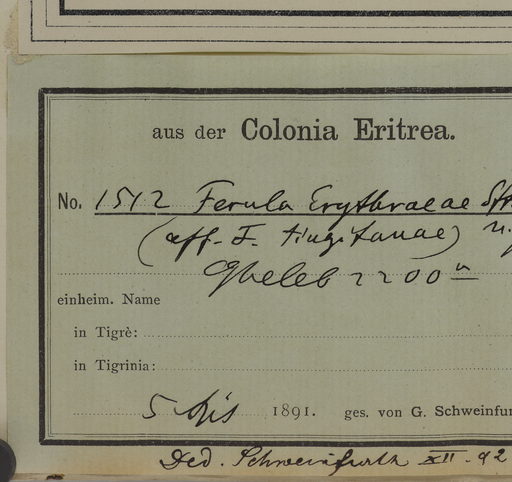 aus der Colonia Eritrea.
No. 1512 Ferula Erythraeae Sfth
(aff. F. tingitanae) n.
Gheleb 2200 m
einheim. Name
in Tigrè:
in Tigrinia:
5 Apr 1891. ges. von G. Schweinfur
Ded. Schweinfurth XII. 92